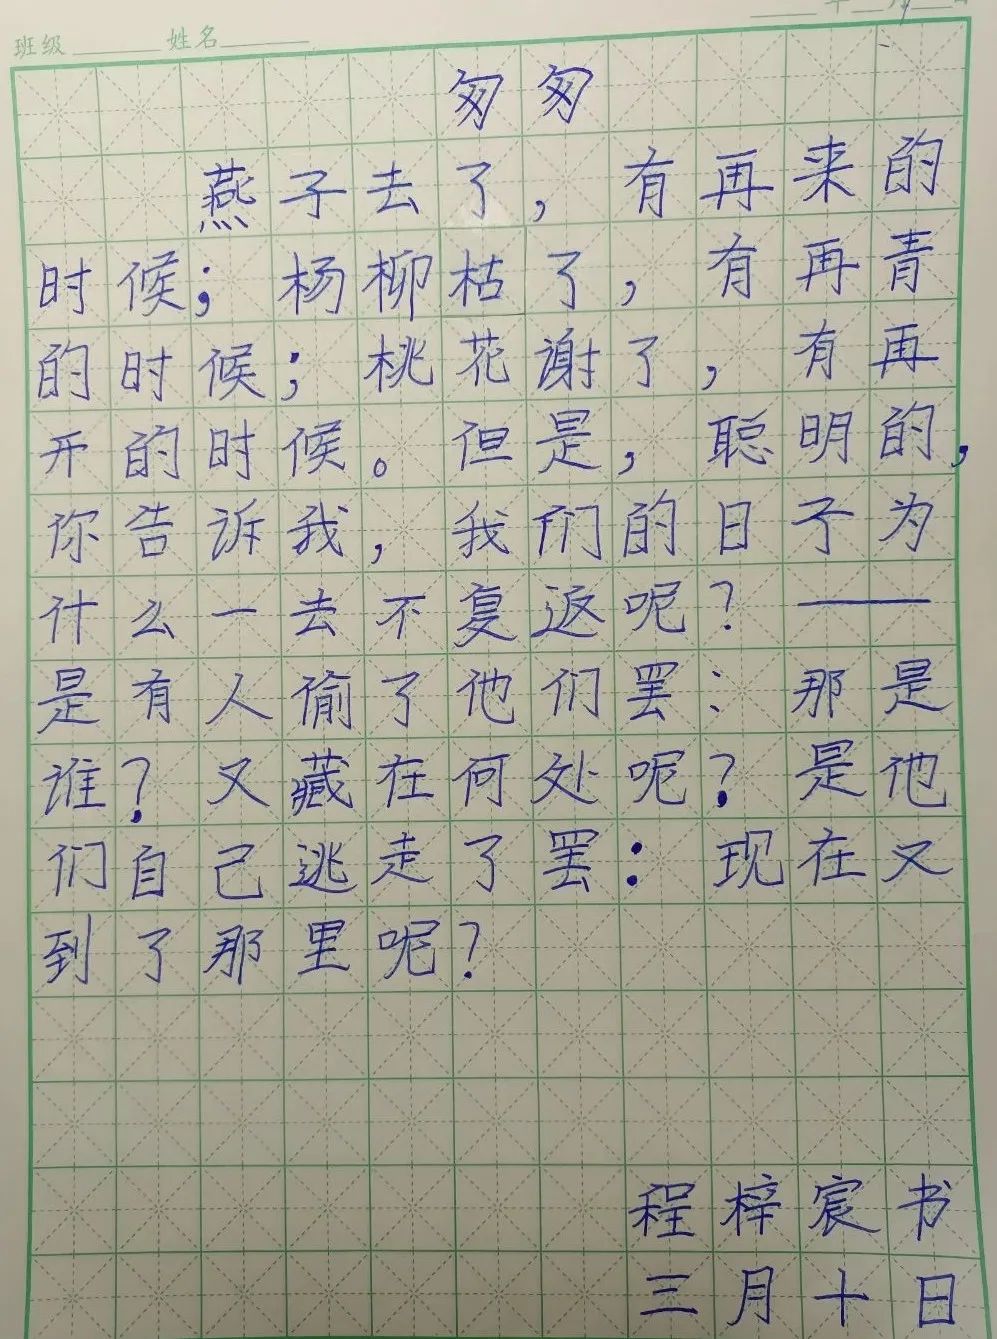 班级 姓名 年 月 日
匆匆
燕子去了，有再来的
时候；杨柳枯了，有再青
的时候；桃花谢了，有再
开的时候。但是，聪明的，
你告诉我，我们的日子为
什么一去不复返呢？——
是有人偷了他们罢：那是
谁？又藏在何处呢？是他
们自己逃走了罢：现在又
到了那里呢？
程梓宸书
三月十日